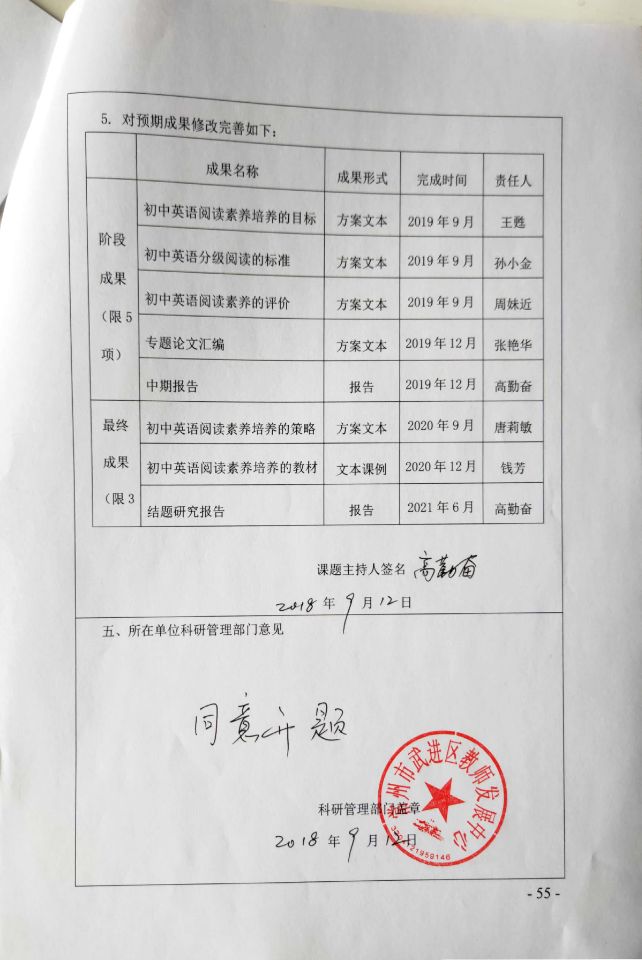 5. 对预期成果修改完善如下：
成果名称 成果形式 完成时间 责任人
阶段成果（限5项）
初中英语阅读素养培养的目标 方案文本 2019年9月 王甦
初中英语分级阅读的标准 方案文本 2019年9月 孙小金
初中英语阅读素养的评价 方案文本 2019年9月 周妹近
专题论文汇编 方案文本 2019年12月 张艳华
中期报告 报告 2019年12月 高勤奋
最终成果（限3
初中英语阅读素养培养的策略 方案文本 2020年9月 唐莉敏
初中英语阅读素养培养的教材 文本课例 2020年12月 钱芳
结题研究报告 报告 2021年6月 高勤奋
课题主持人签名 高勤奋
2018年9月12日
五、所在单位科研管理部门意见
同意开题
科研管理部门盖章
2018年9月12日
常州市武进区教师发展中心
- 55 -